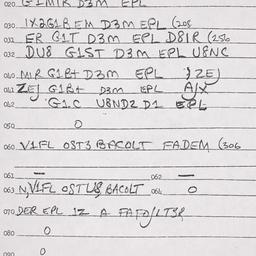 020 G1MIR D3M EPL
030. 1X2G1B EM D3M EPL (205
031 ER G1T D3M EPL D81R (256
032 DU8 G1ST D3M EPL U8NC
040. MR G1B+ D3M EPL ) ZEJ
041 ZEJ G1B+ D3M EPL A/X
042 G1.C U8ND2 D1 EPL
050. 0
060 V1FL O8T3 BACOLT FADEM (306
061. — 062 —
063 N, V1FL OST U8, BACOLT 064 0
070 DER EPL 1Z A
080 0
090 0